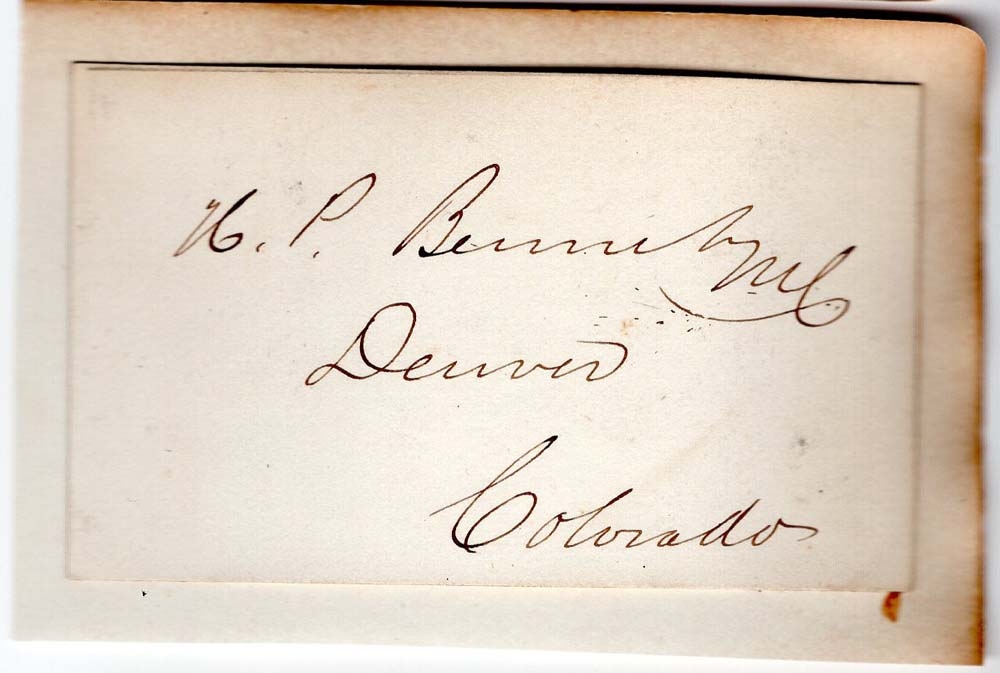 H. P. Bennet MC
Denver
Colorado